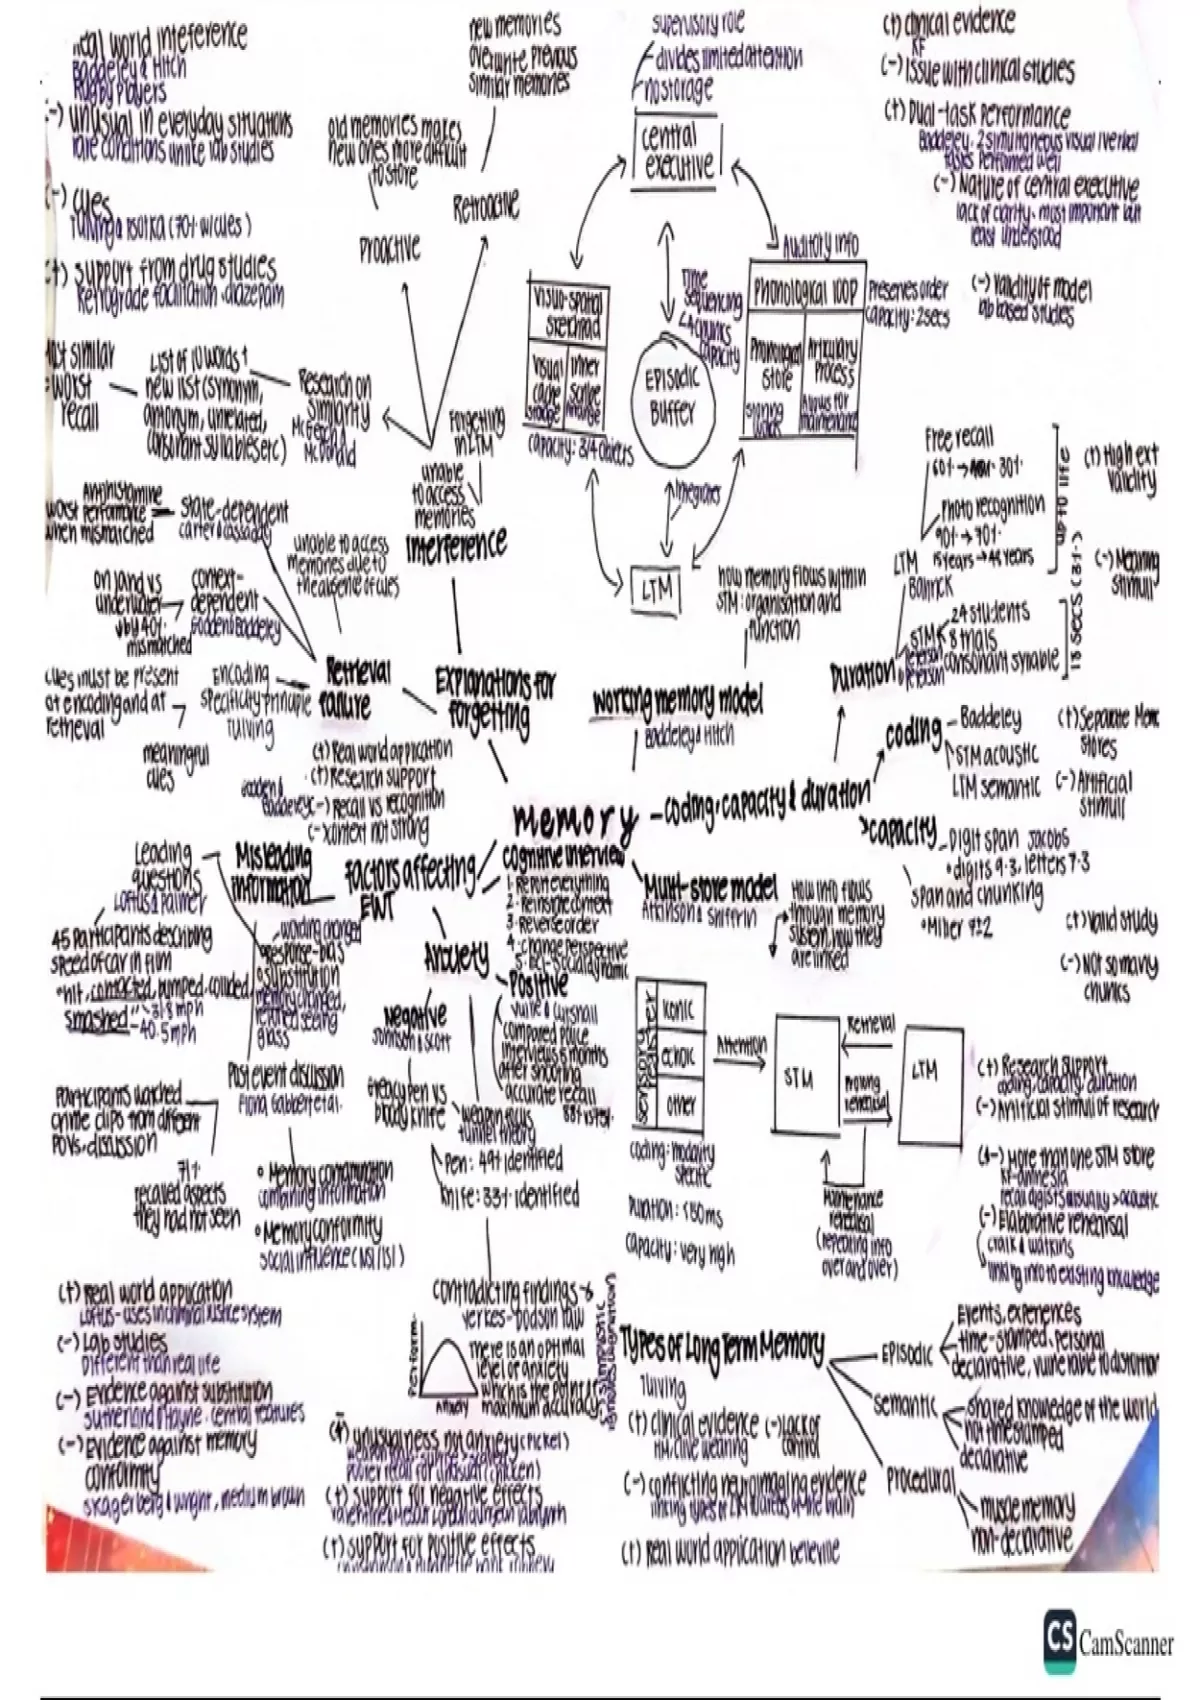 real world inteference
Baddeley & Hitch
Rugby Players
(-) unusual in everyday situations
rare conditions unlike lab studies
(-) cues
Tulving & Psotka (70% w/cues)
(+) support from drug studies
Retrograde facilitation. diazepam
new memories
overwrite previous
similar memories
old memories makes
new ones more difficult
to store
Retroactive
Proactive
most similar
= worst
recall
List of 10 words +
new list (synonym,
antonym, unrelated,
consonant syllables etc)
Research on
similarity
McGeoch &
McDonald
Forgetting
in LTM
unable
to access
memories
interference
supervisory role
divides limited attention
no storage
central
executive
visuo-spatial
sketchpad
visual
cache
storage
inner
scribe
arrange
capacity: 3/4 objects
Time
sequencing
4 chunks
capacity
EPISODIC
BUFFER
integrates
LTM
Auditory info
Phonological loop
Phonological
store
storing
words
Articulatory
Process
Allows for
maintenance
Preserves order
capacity: 2secs
(+) clinical evidence
KF
(-) Issue with clinical studies
(+) Dual-task performance
Baddeley. 2 simultaneous visual/verbal
tasks performed well
(-) Nature of central executive
lack of clarity. most important but
least understood
(-) Validity of model
lab based studies
Antihistamine
worst performance
when mismatched
state-dependent
carter & cassaday
unable to access
memories due to
the absence of cues
on land vs
underwater
by 40%
mismatched
context-
dependent
Godden & Baddeley
cues must be present
at encoding and at
retrieval
Encoding
specificity principle
Tulving
meaningful
cues
Retrieval
failure
(+) Real world application
(+) Research support
Godden &
Baddeley (-) Recall vs recognition
(-) context not strong
Explanations for
forgetting
how memory flows within
STM: organisation and
function
working memory model
Baddeley & Hitch
Free recall
60% → 30%
Photo recognition
90% → 70%
15 years → 48 years
LTM
Bahrick
up to life
(+) High ext
validity
STM
Peterson
& Peterson
24 students
8 trials
consonant syllable
18 secs
(-) Meaning
stimuli
Duration
coding - Baddeley
STM acoustic
LTM semantic
(+) Separate Mem
stores
(-) Artificial
stimuli
Memory
- coding, capacity & duration
capacity
Digit span Jacobs
• digits 9.3, letters 7.3
span and chunking
• Miller 7±2
(+) valid study
(-) Not so many
chunks
Leading
questions
Loftus & Palmer
Misleading
information
factors affecting
EWT
cognitive interview
1. Report everything
2. Reinstate context
3. Reverse order
4. change perspective
45 participants describing
speed of car in film
"hit, contacted, bumped, collided,
smashed" - 31.8 mph
- 40.5 mph
wording changed
response-bias
substitution
memory changed,
reported seeing
glass
Anxiety
Negative
Johnson & Scott
Positive
Yuille & Cutshall
compared police
interviews 5 months
after shooting
accurate recall
greasy pen vs
bloody knife
weapon focus
tunnel theory
Pen: 49% identified
Knife: 33% identified
Post event discussion
Fiona Gabbert et al.
Participants watched
crime clips from different
POVs, discussion
71%
recalled aspects
they had not seen
• Memory contamination
combining information
• Memory conformity
social influence (NSI/ISI)
Multi-store model
Atkinson & Shiffrin
How info flows
through memory
system, how they
are linked
sensory register
iconic
echoic
other
Attention
STM
Retrieval
Prolong
rehearsal
LTM
coding: modality
specific
capacity: very high
Maintenance
rehearsal
(repeating info
over and over)
(+) Research support
coding, capacity, duration
(-) Artificial stimuli of research
(-) More than one STM store
KF amnesia
recall digits visually > acoustic
(-) Elaborative rehearsal
Craik & Watkins
linking info to existing knowledge
(+) Real world application
Loftus - uses in criminal justice system
(-) Lab studies
Different than real life
(-) Evidence against substitution
Sutherland & Hayne. central features
(-) Evidence against memory
conformity
Skagerberg & Wright, medium brown
contradicting findings →
Yerkes-Dodson law
Perform.
Anxiety
There is an optimal
level of anxiety
which is the point of
maximum accuracy
unusualness not anxiety (Pickel)
poorer recall for unusual (chicken)
(+) support for negative effects
(+) support for positive effects
Types of Long Term Memory
Tulving
(+) clinical evidence
HM, Clive Wearing
(-) Lack of
control
(-) conflicting neuroimaging evidence
(+) Real world application Belleville
EPISODIC
Events, experiences
time-stamped, personal
declarative, vulnerable to distortion
semantic
shared knowledge of the world
not time stamped
declarative
Procedural
muscle memory
non-declarative
CS CamScanner